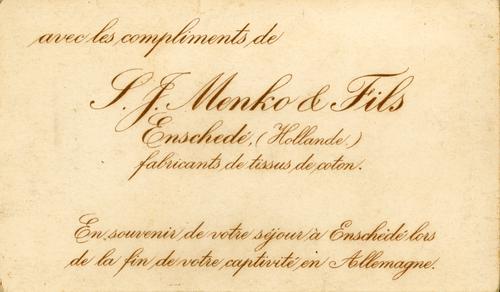 avec les compliments de
S. J. Menko & Fils
Enschedé, (Hollande.)
fabricants de tissus de coton.
En souvenir de votre séjour à Enschédé lors
de la fin de votre captivité en Allemagne.